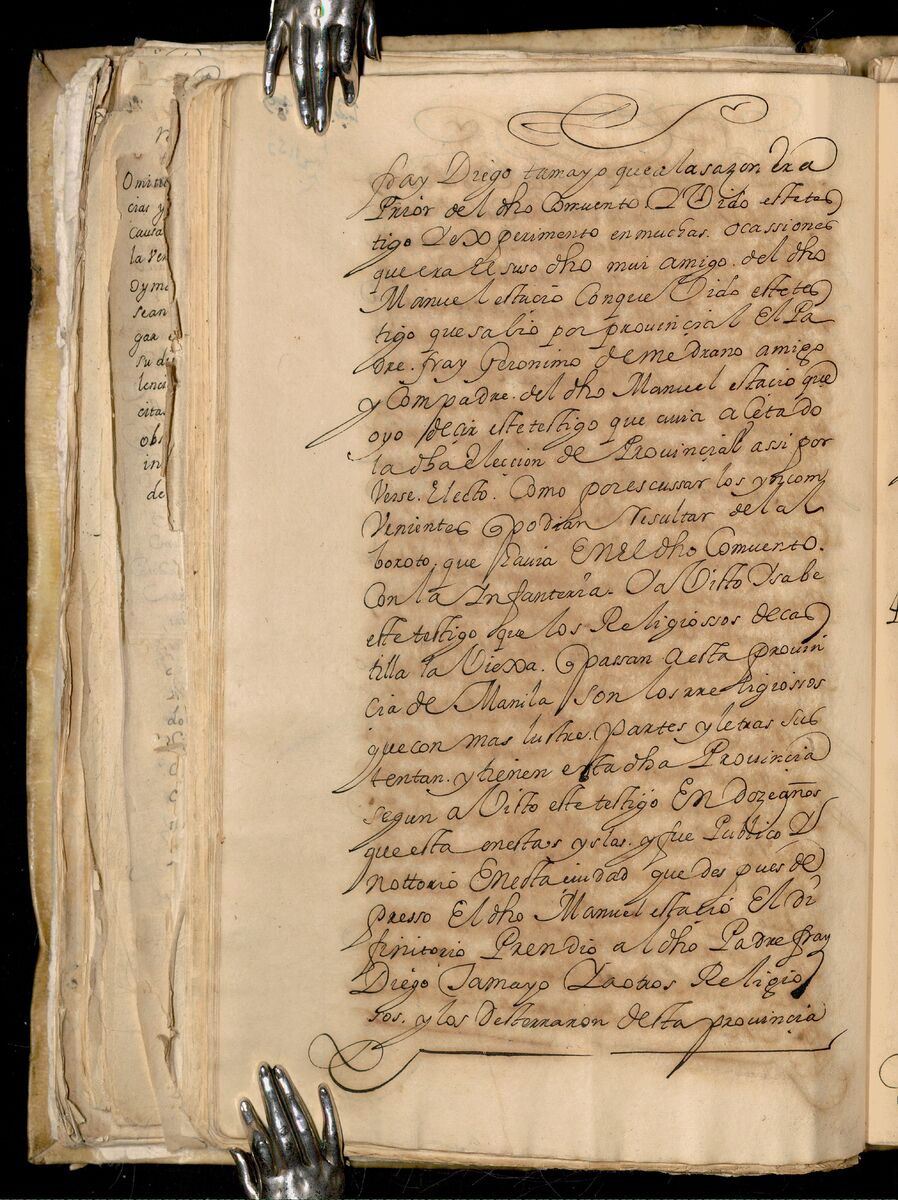 Omitie
cias y
causa
la Ver
oyme
sean
gar
su di
lenc
cita
obs
in
de
fray Diego tamayo que a la sazon era
Prior del dho Comuento. Y Vido estetes
tigo Yexperimento en muchas. ocassiones
que era El suso dho mui amigo. del dho
Manuel estacio Conque Vido estetes
tigo que salio por provincial El Pa
dre. fray Geronimo de medrano amigo
y Compadre. del dho Manuel estacio que
oyo decir estetestigo que avia acetado
la dha Eleccion de Provincial assi por
Verse. Electo. Como por escussar los yncom
Venientes q podian resultar del al
boroto, que havia En El dho Comuento.
Con la Infanteria. Ya Visto Ysabe
estetestigo que los Religiossos de cas
tilla la Viexa. q passan a esta provin
cia de Manila son los rreligiossos
que con mas lustre. partes y letras sus
tentan. y tienen esta dha Provincia
segun a Visto estetestigo En doze años
que esta en estas yslas. y fue Publico Y
nottorio En esta ciudad que des pues de
presso El dho Manuel estacio El di
finitorio Prendio al dho Padre fray
Diego Tamayo Y a otros Religio
sos. y los Desterraron desta provincia